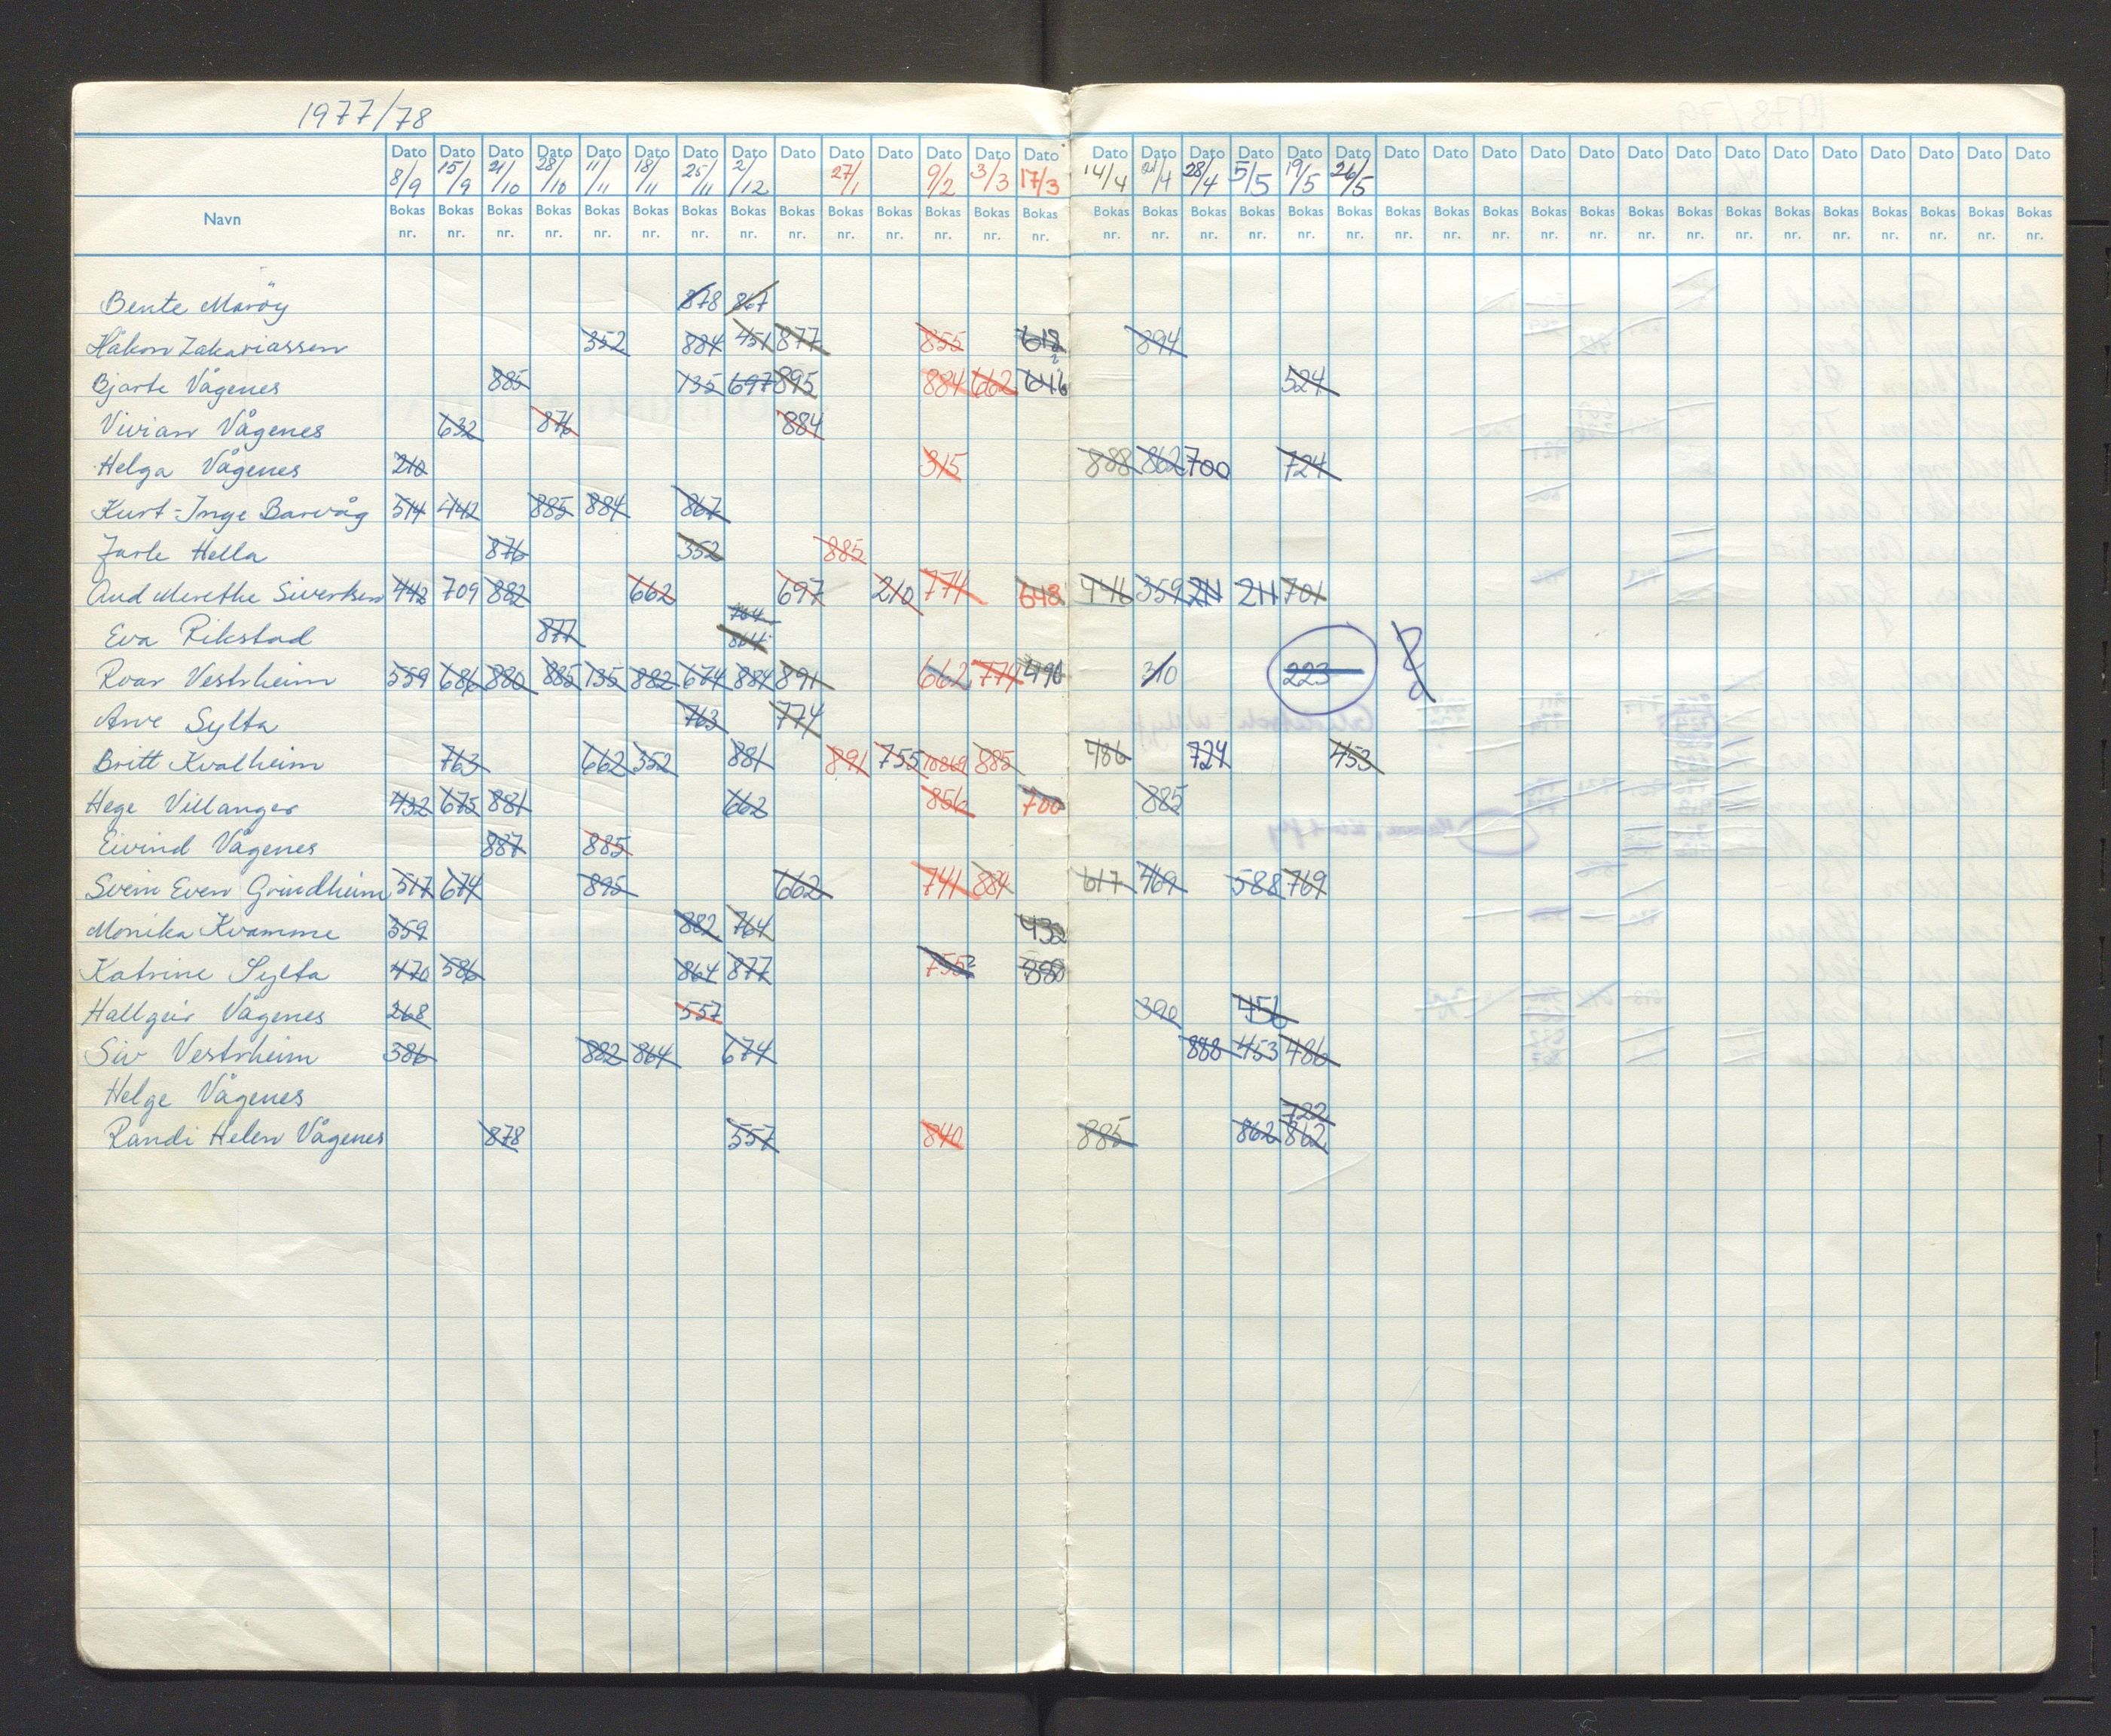 1977/78
Dato Dato Dato Dato Dato Dato Dato Dato Dato Dato Dato Dato Dato Dato Dato Dato Dato Dato Dato Dato Dato Dato Dato Dato Dato Dato Dato Dato Dato Dato Dato Dato Dato Dato
8/9 15/9 21/10 28/10 11/11 18/11 25/11 2/12 27/1 9/2 3/3 17/3 14/4 21/4 28/4 5/5 19/5 26/5
Navn Bokas Bokas Bokas Bokas Bokas Bokas Bokas Bokas Bokas Bokas Bokas Bokas Bokas Bokas Bokas Bokas Bokas Bokas Bokas Bokas Bokas Bokas Bokas Bokas Bokas Bokas Bokas Bokas Bokas Bokas Bokas Bokas Bokas Bokas
nr. nr. nr. nr. nr. nr. nr. nr. nr. nr. nr. nr. nr. nr. nr. nr. nr. nr. nr. nr. nr. nr. nr. nr. nr. nr. nr. nr. nr. nr. nr. nr. nr. nr.
Bente Marøy 878 867
Håkon Zakariassen 352 884 451 877 855 618 894
Bjarte Vågenes 885 135 697 895 884 662 646 524
Vivian Vågenes 632 876 884
Helga Vågenes 210 315 888 862 700 724
Kurt-Inge Barvåg 514 442 885 884 867
Jarle Hella 876 352 885
Aud Merethe Sivertsen 442 709 882 662 697 210 774 648 446 359 211 211 701
764
Eva Rikstad 877 864
Roar Vestrheim 559 686 880 885 135 882 674 884 891 662 774 496 310 223
Arve Sylta 763 774
Britt Kvalheim 763 662 352 881 891 755 885 486 724 453
Hege Villanger 432 675 881 662 856 700 885
Eivind Vågenes 887 885
Svein Even Grindheim 517 674 895 662 741 884 617 469 588 769
Monika Kvamme 359 882 764 432
Katrine Sylta 470 586 864 877 755 880
Hallgeir Vågenes 268 557 390 456
Siv Vestrheim 386 882 864 674 888 453 486
Helge Vågenes
722
Randi Helen Vågenes 878 557 840 885 862 862